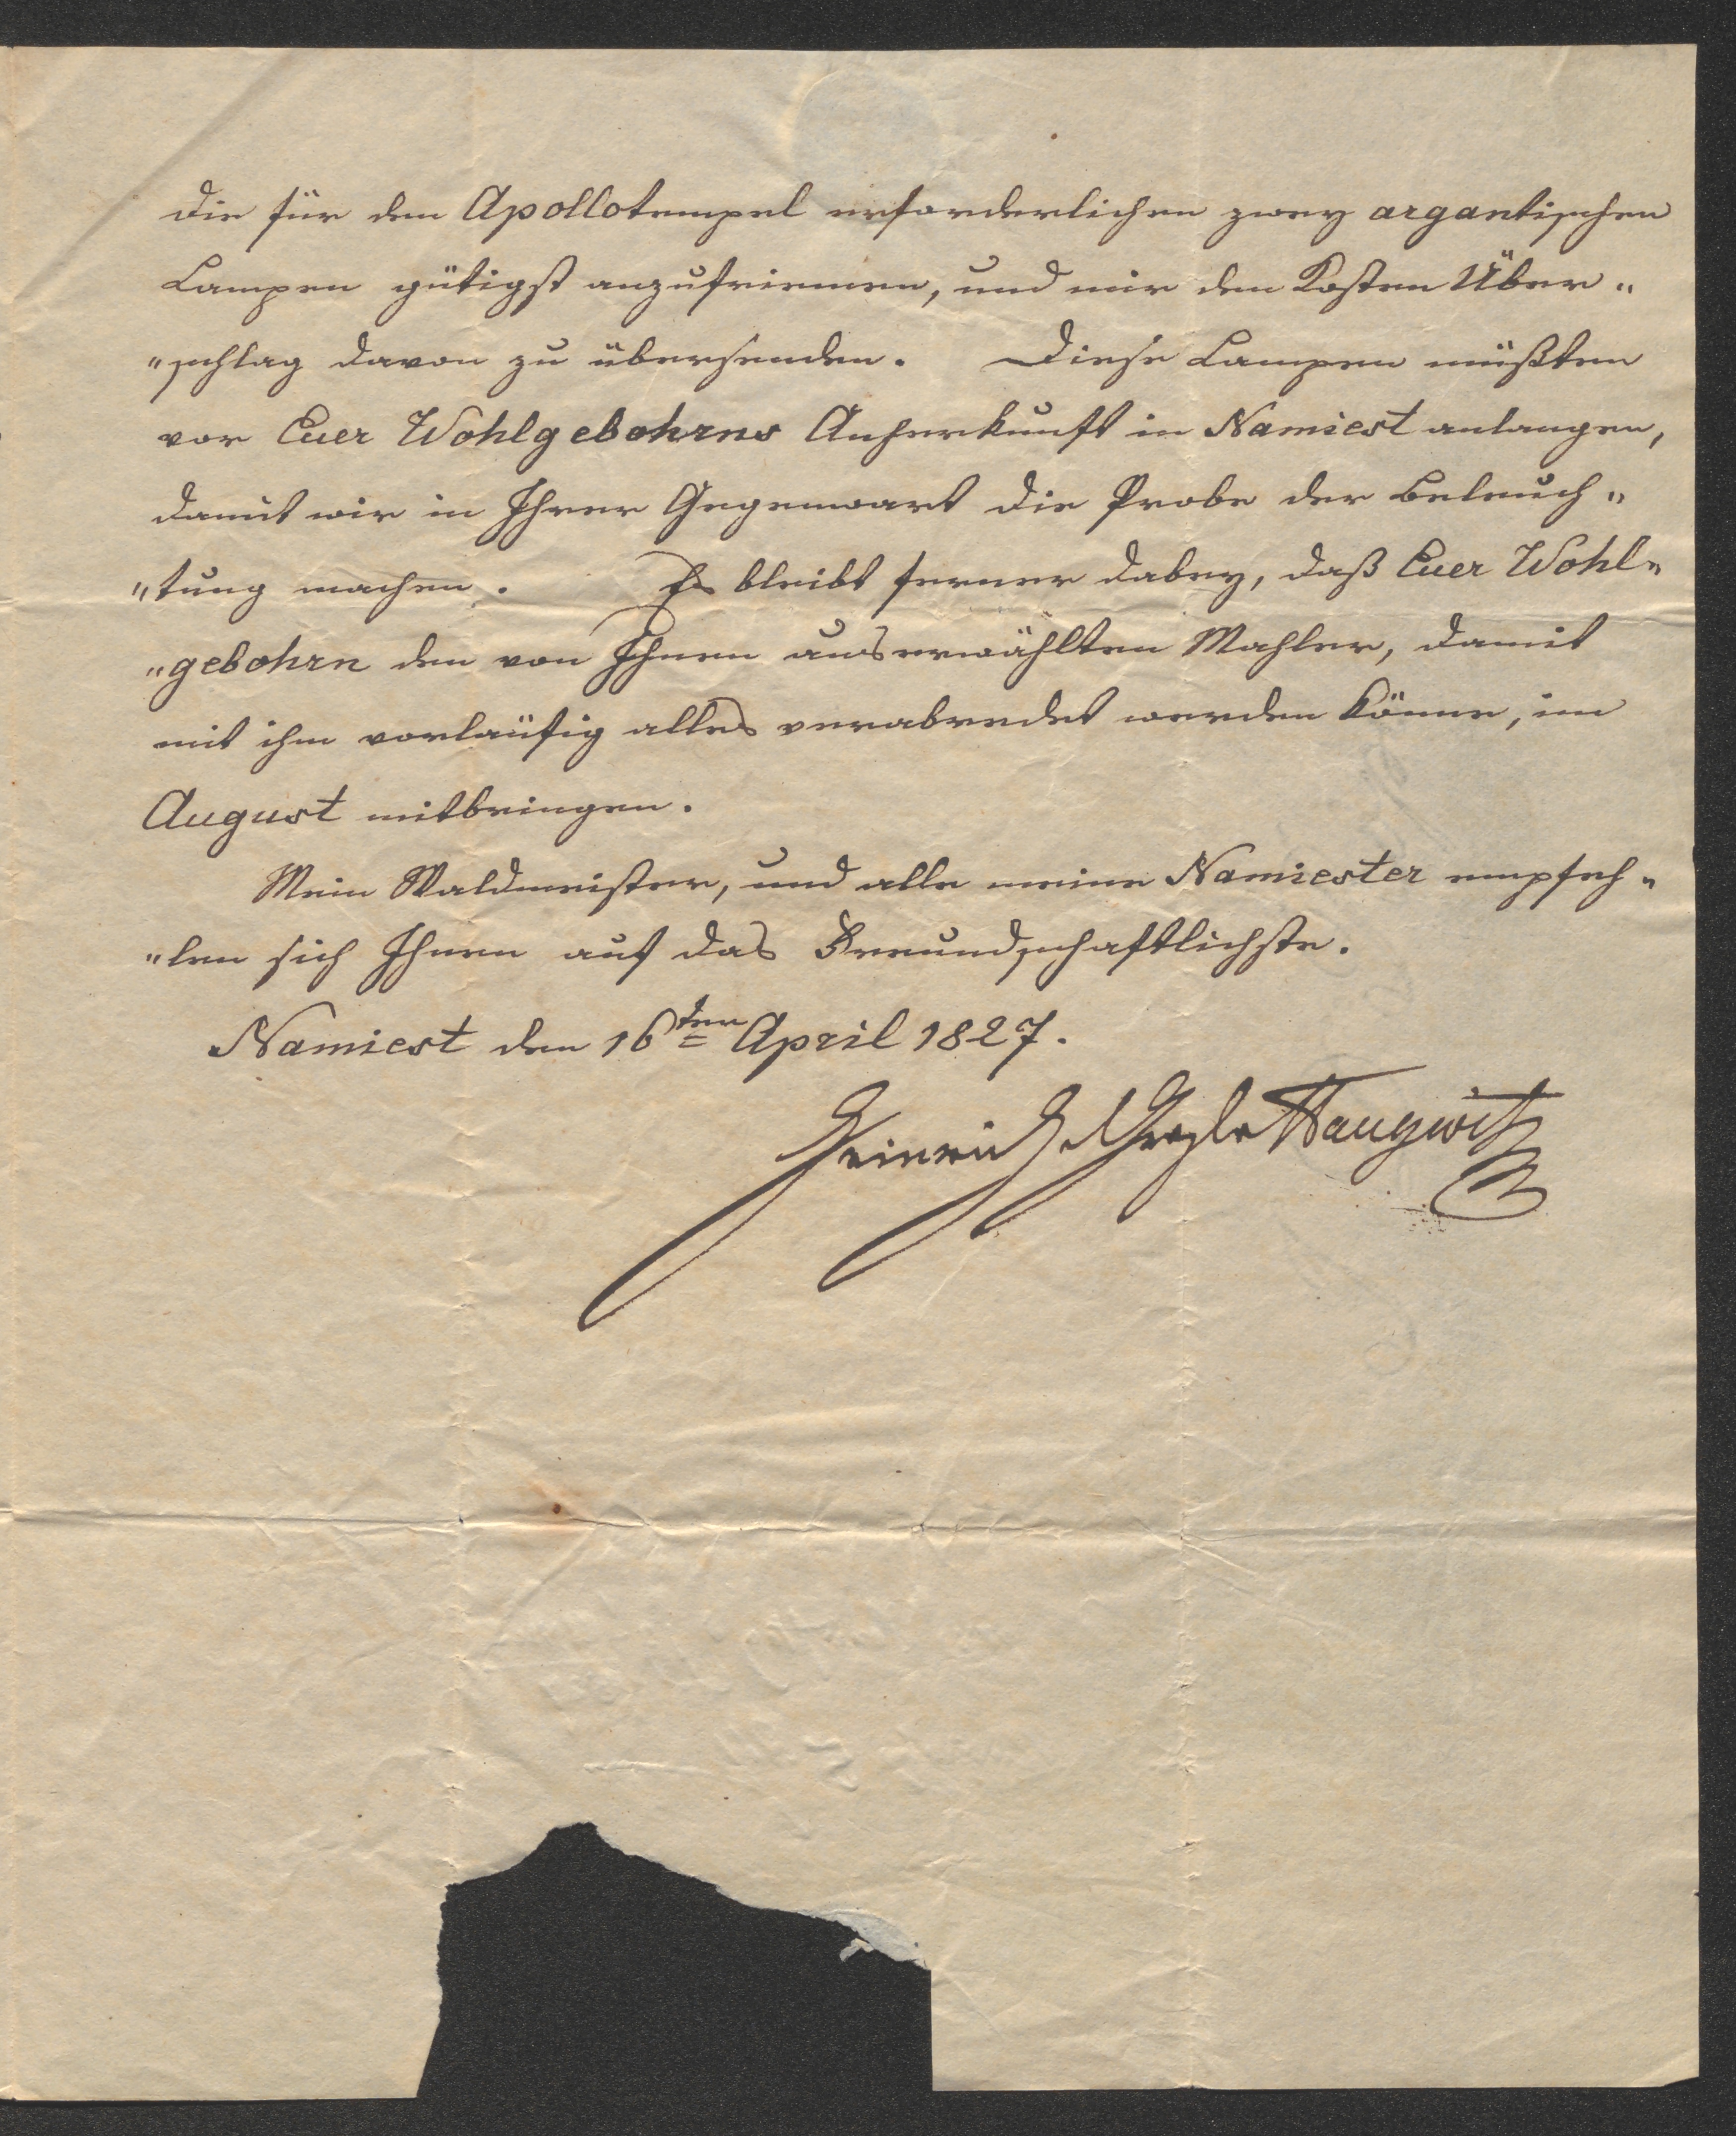 die für den Apollotempel erforderlichen zwey argantischen
Lampen gütigst anzufriemen, und mir den Kosten Über„
„schlag davon zu übersenden. Diese Lampen müßten
vor Euer Wohlgebohrns Anherkunft in Namiest anlangen,
damit wir in Ihrer Gegenwart die Probe der Beleuch„
„tung machen. Es bleibt ferner dabey, daß Euer Wohl„
„gebohrn den von Ihnen auserwählten Mahler, damit
mit ihm vorläufig alles verabredet werden könne, im
August mitbringen.
Mein Waldmeister, und alle meine Namiester empfeh„
„len sich Ihnen auf das Freundschaftlichste.
Namiest den 16ten April 1827.
Heinrich Haugwitz